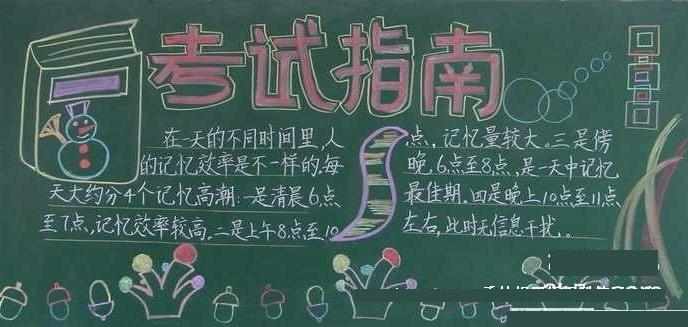 考试指南
在一天的不同时间里,人
的记忆效率是不一样的.每
天大约分4个记忆高潮:一是清晨6点
至7点,记忆效率较高。二是上午8点至10
点,记忆量较大。三是傍
晚,6点至8点,是一天中记忆
最佳期.四是晚上10点至11点
左右,此时无信息干扰。